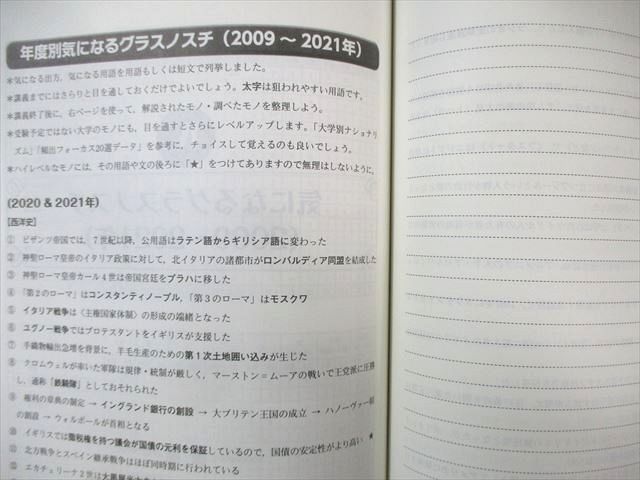 年度別気になるグラスノスチ(2009 ~ 2021年)
*気になる出方,気になる用語を用語もしくは短文で列挙しました。
*講義までにはさらりと目を通しておくだけでよいでしょう。太字は狙われやすい用語です。
*講義終了後に,右ページを使って,解説されたモノ・調べたモノを整理しよう。
*受験予定ではない大学のモノにも,目を通すとさらにレベルアップします。「大学別ナショナリ
ズム」「頻出フォーカス20選データ」を参考に,チョイスして覚えるのも良いでしょう。
*ハイレベルなモノには,その用語や文の後ろに「★」をつけてありますので無理はしないように。
(2020 & 2021年)
[西洋史]
① ビザンツ帝国では,7世紀以降,公用語はラテン語からギリシア語に変わった
② 神聖ローマ皇帝のイタリア政策に対して,北イタリアの諸都市がロンバルディア同盟を結成した
③ 神聖ローマ皇帝カール4世は帝国宮廷をプラハに移した
④ 「第2のローマ」はコンスタンティノープル,「第3のローマ」はモスクワ
⑤ イタリア戦争は〈主権国家体制〉の形成の端緒となった
⑥ ユグノー戦争ではプロテスタントをイギリスが支援した
⑦ 手織物輸出急増を背景に,羊毛生産のための第1次土地囲い込みが生じた
⑧ クロムウェルが率いた軍隊は規律・統制が厳しく,マーストン=ムーアの戦いで王党派に圧勝
し,通称「鉄騎隊」としておそれられた
⑨ 権利の章典の制定 → イングランド銀行の創設 → 大ブリテン王国の成立 → ハノーヴァー朝
の創設 → ウォルポールが首相となる
⑩ イギリスでは徴税権を持つ議会が国債の元利を保証しているので,国債の安定性がより高い ★
⑪ 北方戦争とスペイン継承戦争はほぼ同時期に行われている
⑫ エカチェリーナ2世は大黒屋光太